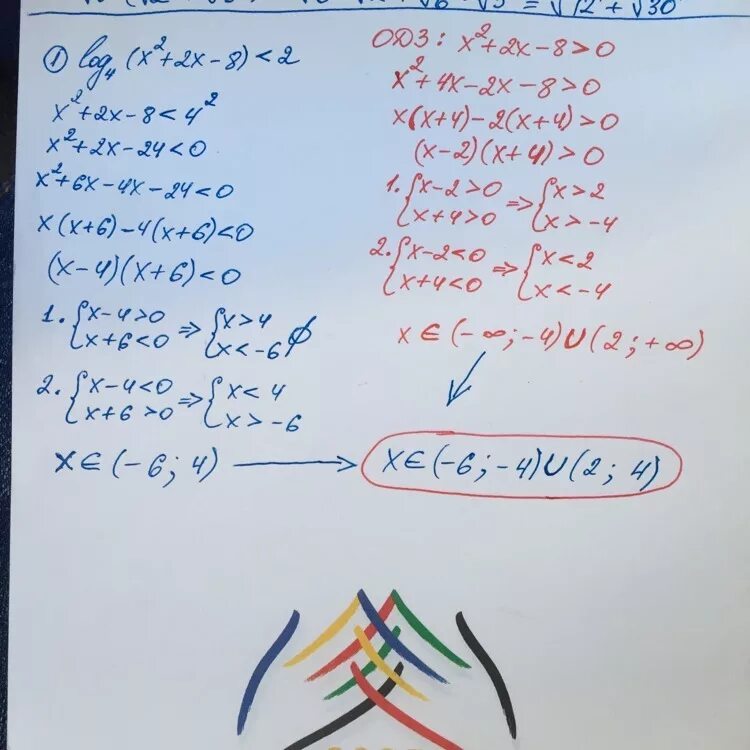 = √12 + √30
① log₄(x²+2x-8)<2
x²+2x-8<4²
x²+2x-24<0
x²+6x-4x-24<0
x(x+6)-4(x+6)<0
(x-4)(x+6)<0
1. {x-4>0 ⇒ {x>4
{x+6<0 {x<-6 ∅
2. {x-4<0 ⇒ {x<4
{x+6>0 {x>-6
x∈(-6; 4) →
ОДЗ: x²+2x-8>0
x²+4x-2x-8>0
x(x+4)-2(x+4)>0
(x-2)(x+4)>0
1. {x-2>0 ⇒ {x>2
{x+4>0 {x>-4
2. {x-2<0 ⇒ {x<2
{x+4<0 {x<-4
x∈(-∞;-4)∪(2;+∞)
x∈(-6;-4)∪(2; 4)